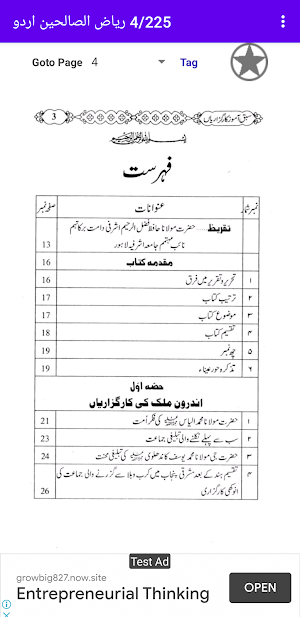 4/225 ریاض الصالحین اردو
Goto Page 4 Tag
3 سبق آموز کارگزاریاں
بسم اللہ الرحمن الرحیم
فہرست
نمبر شمار عنوانات صفحہ نمبر
تقریظ..... حضرت مولانا حافظ فضل الرحیم اشرفی دامت برکاتہم
نائب مہتمم جامعہ اشرفیہ لاہور 13
مقدمہ کتاب 16
۱ تحریر و تقریر میں فرق 16
۲ ترتیب کتاب 17
۳ موضوع کتاب 17
۴ تقسیم کتاب 18
۵ چھ نمبر 19
۶ تذکرہ حور عیناء 19
حصہ اول
اندرون ملک کی کارگزاریاں
۱ حضرت مولانا محمد الیاس کی فکر امت 21
۲ سب سے پہلے نکلنے والی تبلیغی جماعت 23
۳ حضرت جی مولانا محمد یوسف کاندھلوی کی تبلیغی محنت 24
۴ تقسیم ہند کے بعد مشرقی پنجاب میں کرب و بلا سے گزرنے والی جماعت کی
انوکھی کارگزاری 26
Test Ad
growbig827.now.site
Entrepreneurial Thinking
OPEN